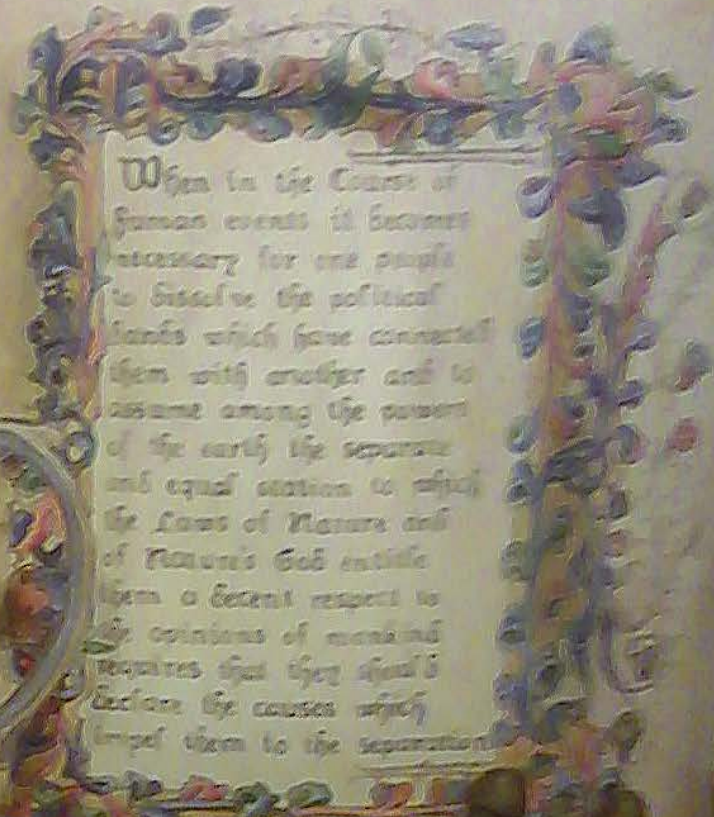 When in the Course of
human events it becomes
necessary for one people
to dissolve the political
bands which have connected
them with another and to
assume among the powers
of the earth the separate
and equal station to which
the Laws of Nature and
of Nature's God entitle
them a decent respect to
the opinions of mankind
requires that they should
declare the causes which
impel them to the separation